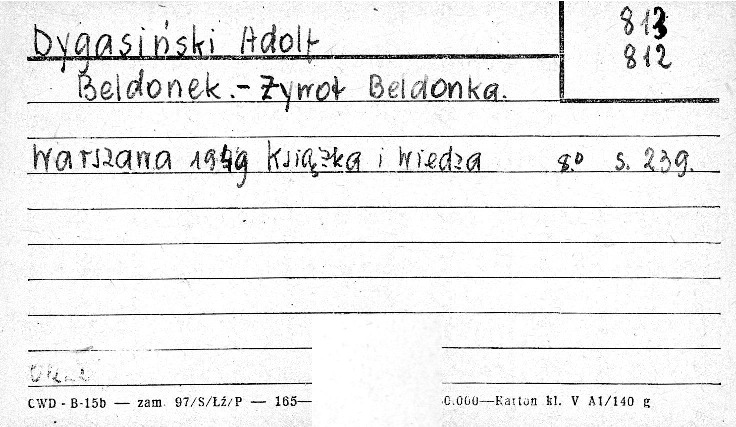 813
812
Dygasiński Adolf
Beldonek. - Żywot Beldonka.
Warszawa 1949 Książka i Wiedza 8.° s. 239.
CWD - B-15b — zam. 97/S/Łź/P — 165— 0.000—Karton kl. V A1/140 g